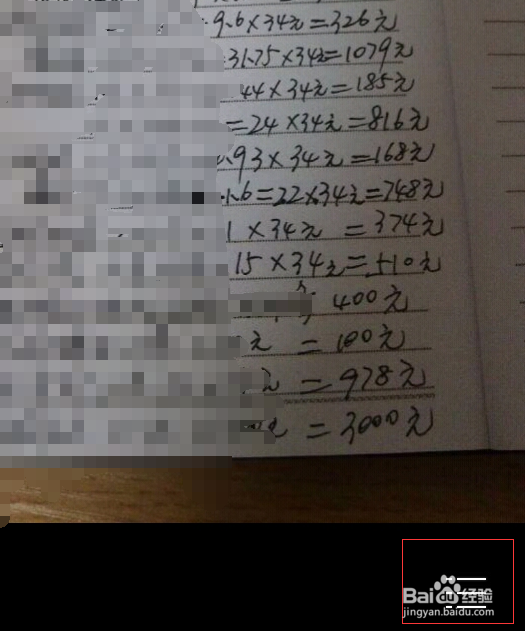 9.6×34元=326元
31.75×34元=1079元
44×34元=185元
=24×34元=816元
.93×34元=168元
1.6=22×34元=748元
1×34元=374元
15×34元=510元
400元
元=100元
=978元
=3000元
Baidu经验
jingyan.baidu.com